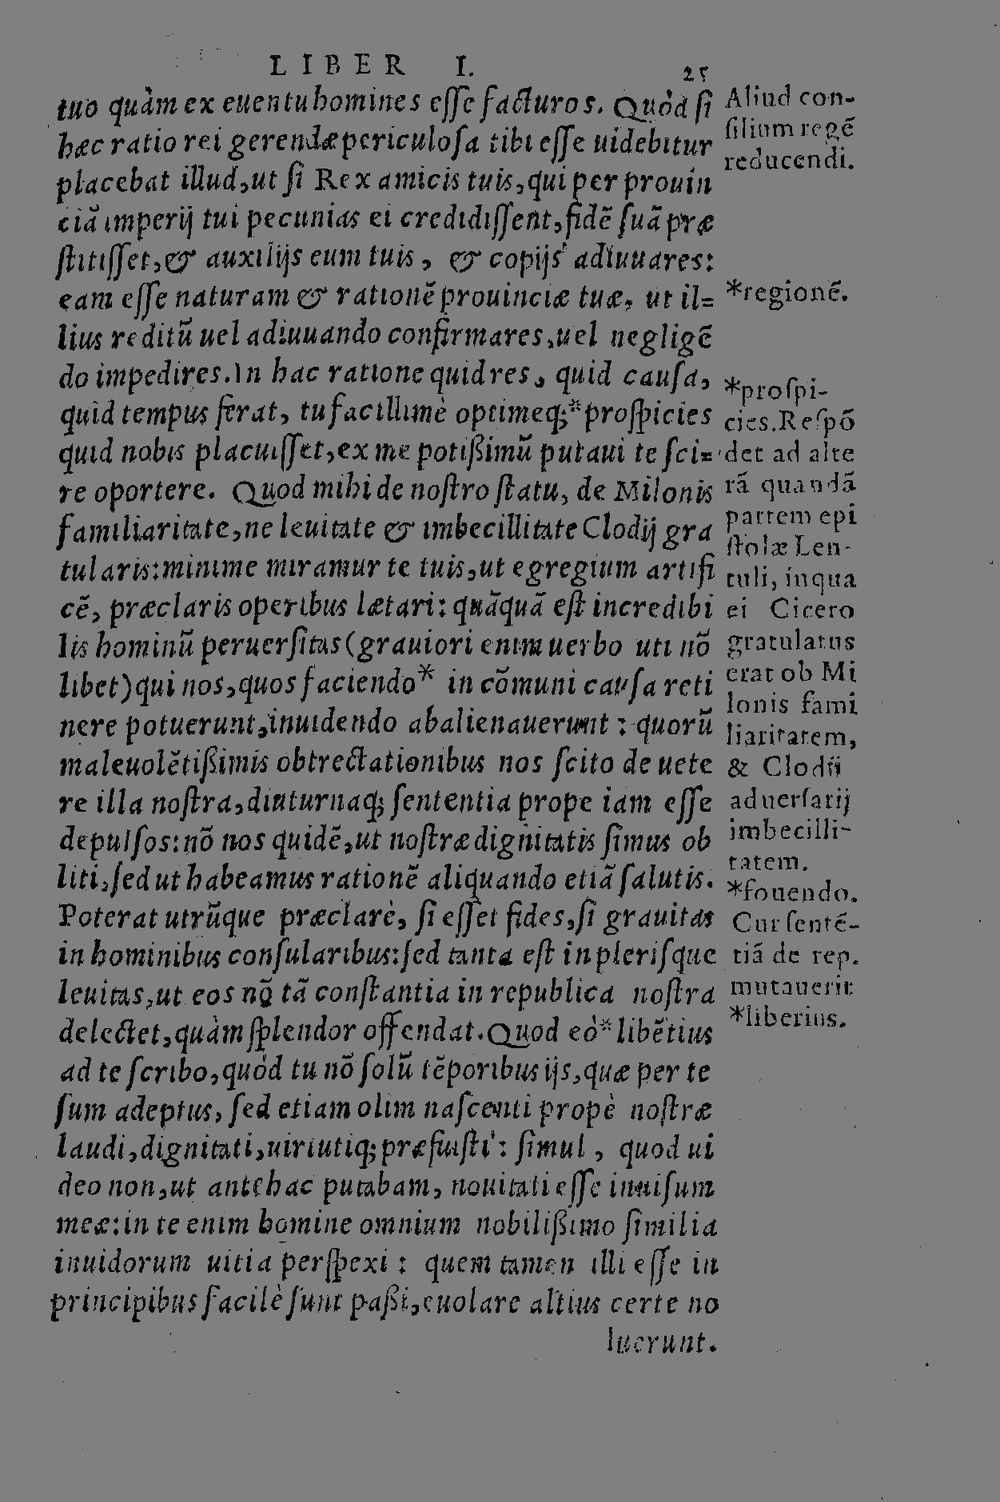 LIBER I. 25
tuo quàm ex euentu homines esse facturos. Quòd si
hæc ratio rei gerendæ periculosa tibi esse uidebitur
placebat illud, ut si Rex amicis tuis, qui per prouin
ciā imperij tui pecunias ei credidissent, fidē suā præ
stitisset, & auxilijs eum tuis, & copijs adiuuares:
eam esse naturam & rationē prouinciæ tuæ, ut il=
lius reditū uel adiuuando confirmares, uel negligē
do impedires. In hac ratione quid res, quid causa,
quid tempus ferat, tu facillimè optimeq;*prospicies
quid nobis placuisset, ex me potißimū putaui te sci=
re oportere. Quod mihi de nostro statu, de Milonis
familiaritate, ne leuitate & imbecillitate Clodij gra
tularis: minime miramur te tuis, ut egregium artifi
cē, præclaris operibus lætari: quāquā est incredibi
lis hominū peruersitas (grauiori enim uerbo uti nō
libet) qui nos, quos faciendo* in cōmuni causa reti
nere potuerunt, inuidendo abalienauerunt: quorū
maleuolētißimis obtrectationibus nos scito de uete
re illa nostra, diuturnaq; sententia prope iam esse
depulsos: nō nos quidē, ut nostræ dignitatis simus ob
liti, sed ut habeamus rationē aliquando etiā salutis.
Poterat utrūque præclarè, si esset fides, si grauitas
in hominibus consularibus: sed tanta est in plerisque
leuitas, ut eos nō tā constantia in republica nostra
delectet, quàm splendor offendat. Quod eò*libētius
ad te scribo, quòd tu nō solū tēporibus ijs, quæ per te
sum adeptus, sed etiam olim nascenti propè nostræ
laudi, dignitati, uirtutiq; præfuisti: simul, quod ui
deo non, ut antehac putabam, nouitati esse inuisum
meæ: in te enim homine omnium nobilißimo similia
inuidorum uitia perspexi: quem tamen illi esse in
principibus facilè sunt paßi, euolare altius certe no
luerunt.
Aliud con-
silium regē
reducendi.
*regionē.
*prospi-
cies. Respō
det ad alte
rā quandā
partem epi
stolæ Len-
tuli, in qua
ei Cicero
gratulatus
erat ob Mi
lonis fami
liaritatem,
& Clodii
aduersarij
imbecilli-
tatem.
*fouendo.
Cur sentē-
tiā de rep.
mutauerit
*liberius.